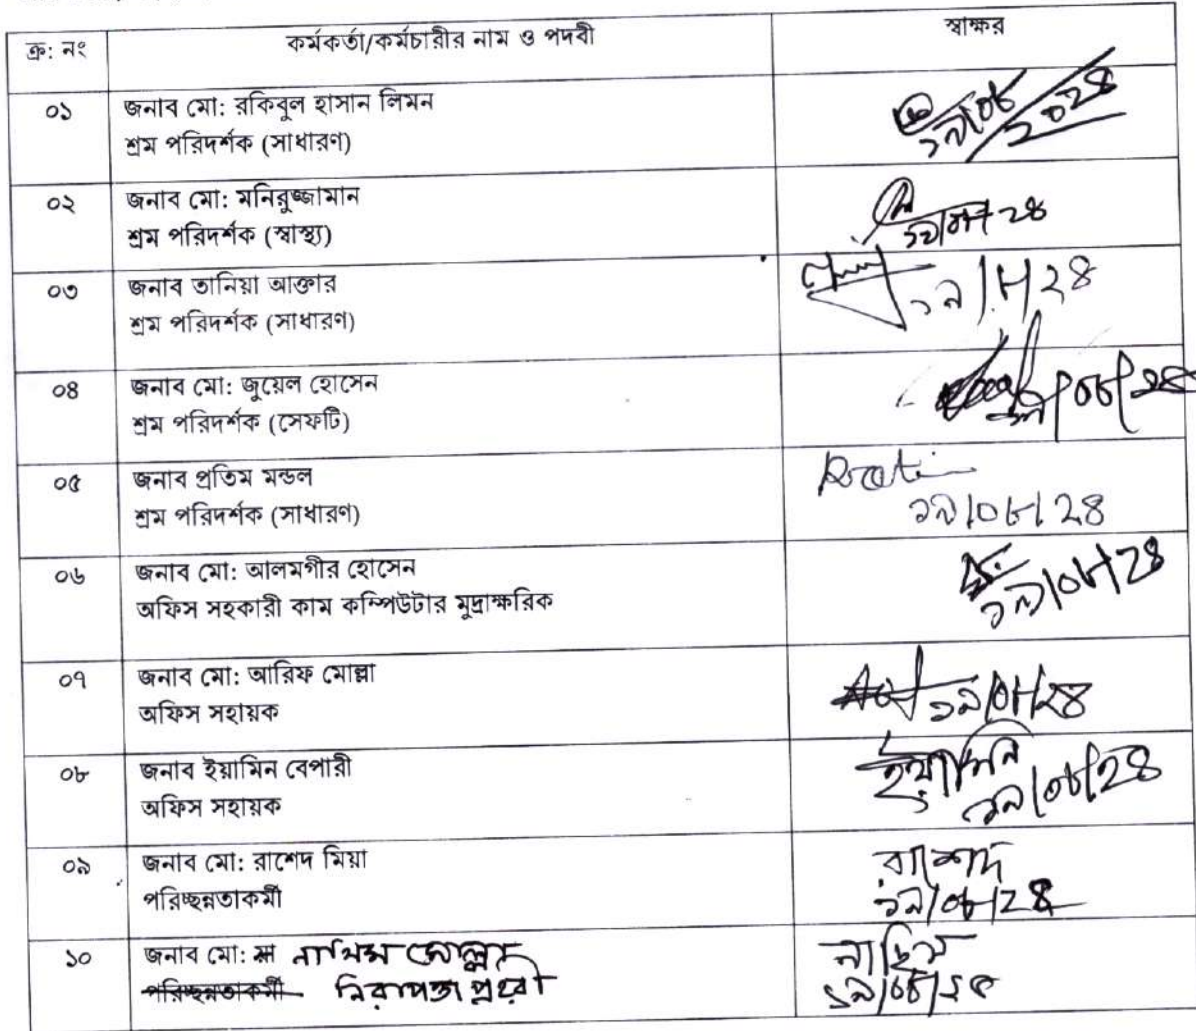 ক্র: নং কর্মকর্তা/কর্মচারীর নাম ও পদবী স্বাক্ষর
০১ জনাব মো: রকিবুল হাসান লিমন
শ্রম পরিদর্শক (সাধারণ)
১৯/০৮/২০২৪
০২ জনাব মো: মনিরুজ্জামান
শ্রম পরিদর্শক (স্বাস্থ্য)
০৩ জনাব তানিয়া আক্তার
শ্রম পরিদর্শক (সাধারণ)
০৪ জনাব মো: জুয়েল হোসেন
শ্রম পরিদর্শক (সেফটি)
০৫ জনাব প্রতিম মন্ডল
শ্রম পরিদর্শক (সাধারণ)
১৯/০৮/২৪
০৬ জনাব মো: আলমগীর হোসেন
অফিস সহকারী কাম কম্পিউটার মুদ্রাক্ষরিক
১৯/০৮/২৪
০৭ জনাব মো: আরিফ মোল্লা
অফিস সহায়ক
১৯/০৮/২৪
০৮ জনাব ইয়ামিন বেপারী ইয়ামিন
অফিস সহায়ক ১৯/০৮/২৪
০৯ জনাব মো: রাশেদ মিয়া রাশেদ
পরিচ্ছন্নতাকর্মী ১৯/০৮/২৪
১০ জনাব মো: মোল্লা
পরিচ্ছন্নতাকর্মী নিরাপত্তা প্রহরী